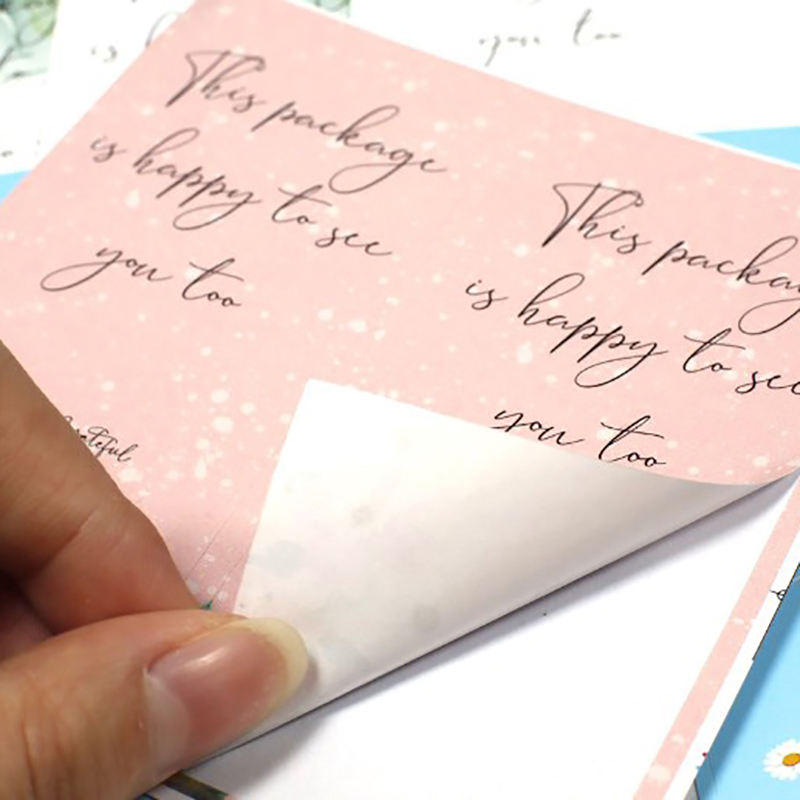 you too
is
This package
is happy to see
you too
This packag
is happy to see
you too